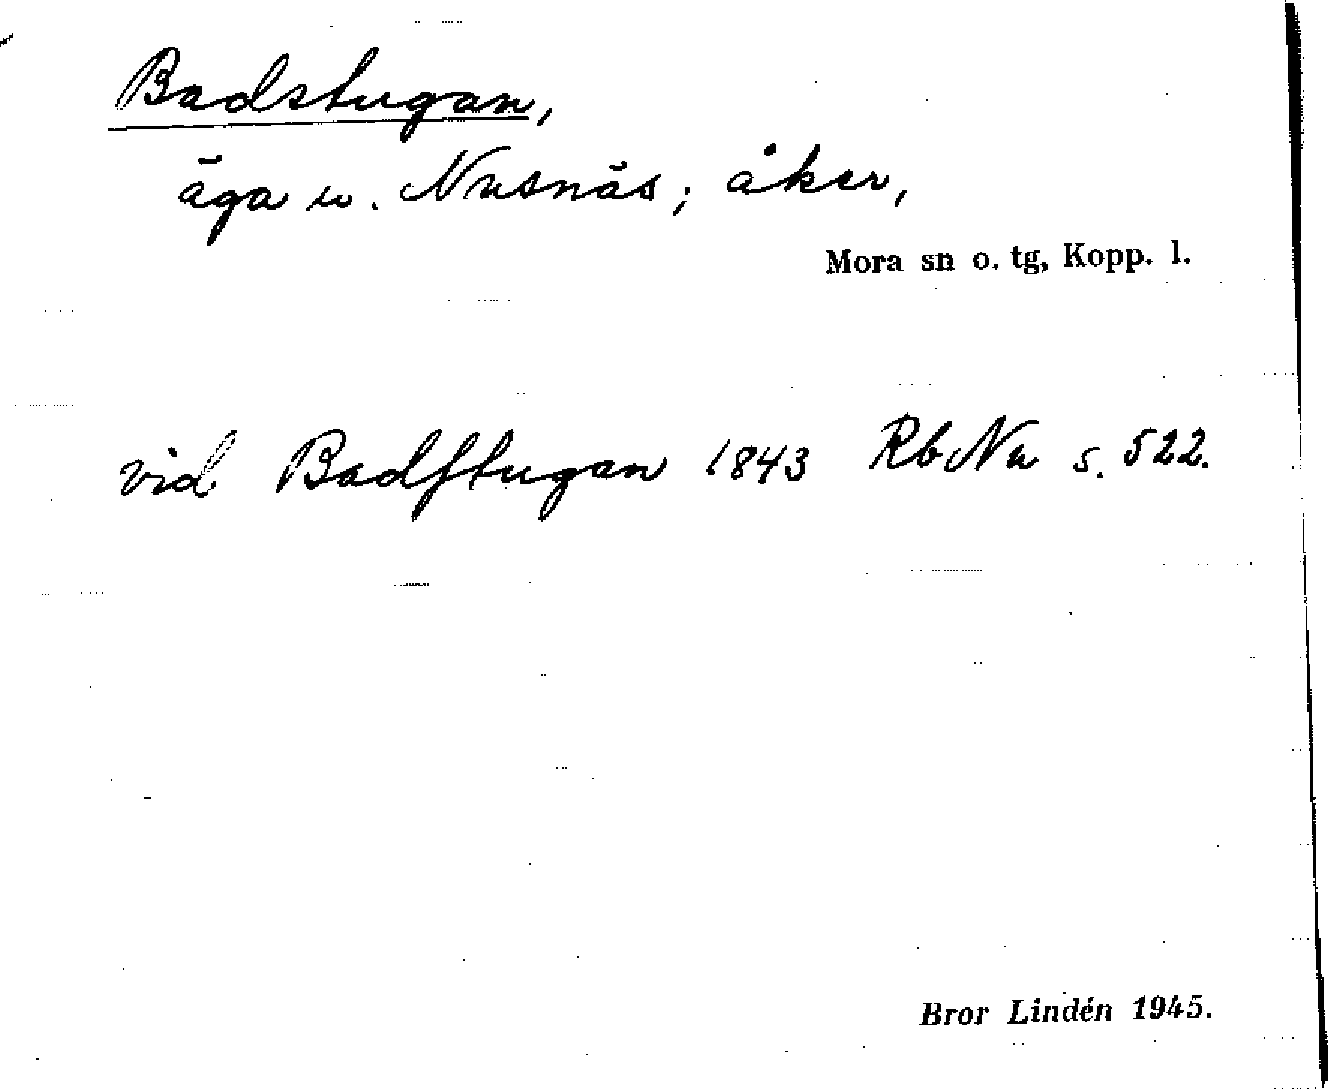 Badstugan,
äga u. Nusnäs; åker,
Mora sn o. tg, Kopp. l.
vid Badſtugan 1843 Rb Nu s. 522.
Bror Lindén 1945.